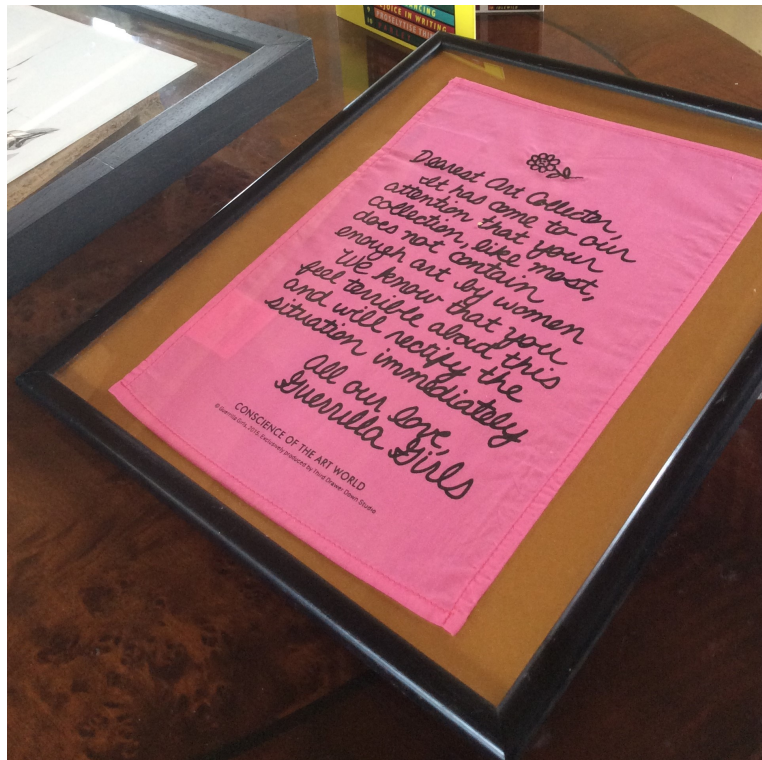 REJOICE IN WRITING
PROSELYTISE
Dearest Art Collector,
It has come to our
attention that your
collection, like most,
does not contain
enough art by women
We know that you
feel terrible about this
and will rectify the
situation immediately
All our love,
Guerrilla Girls
CONSCIENCE OF THE ART WORLD
© Guerrilla Girls, 2016. Exclusively produced by Third Drawer Down Studio